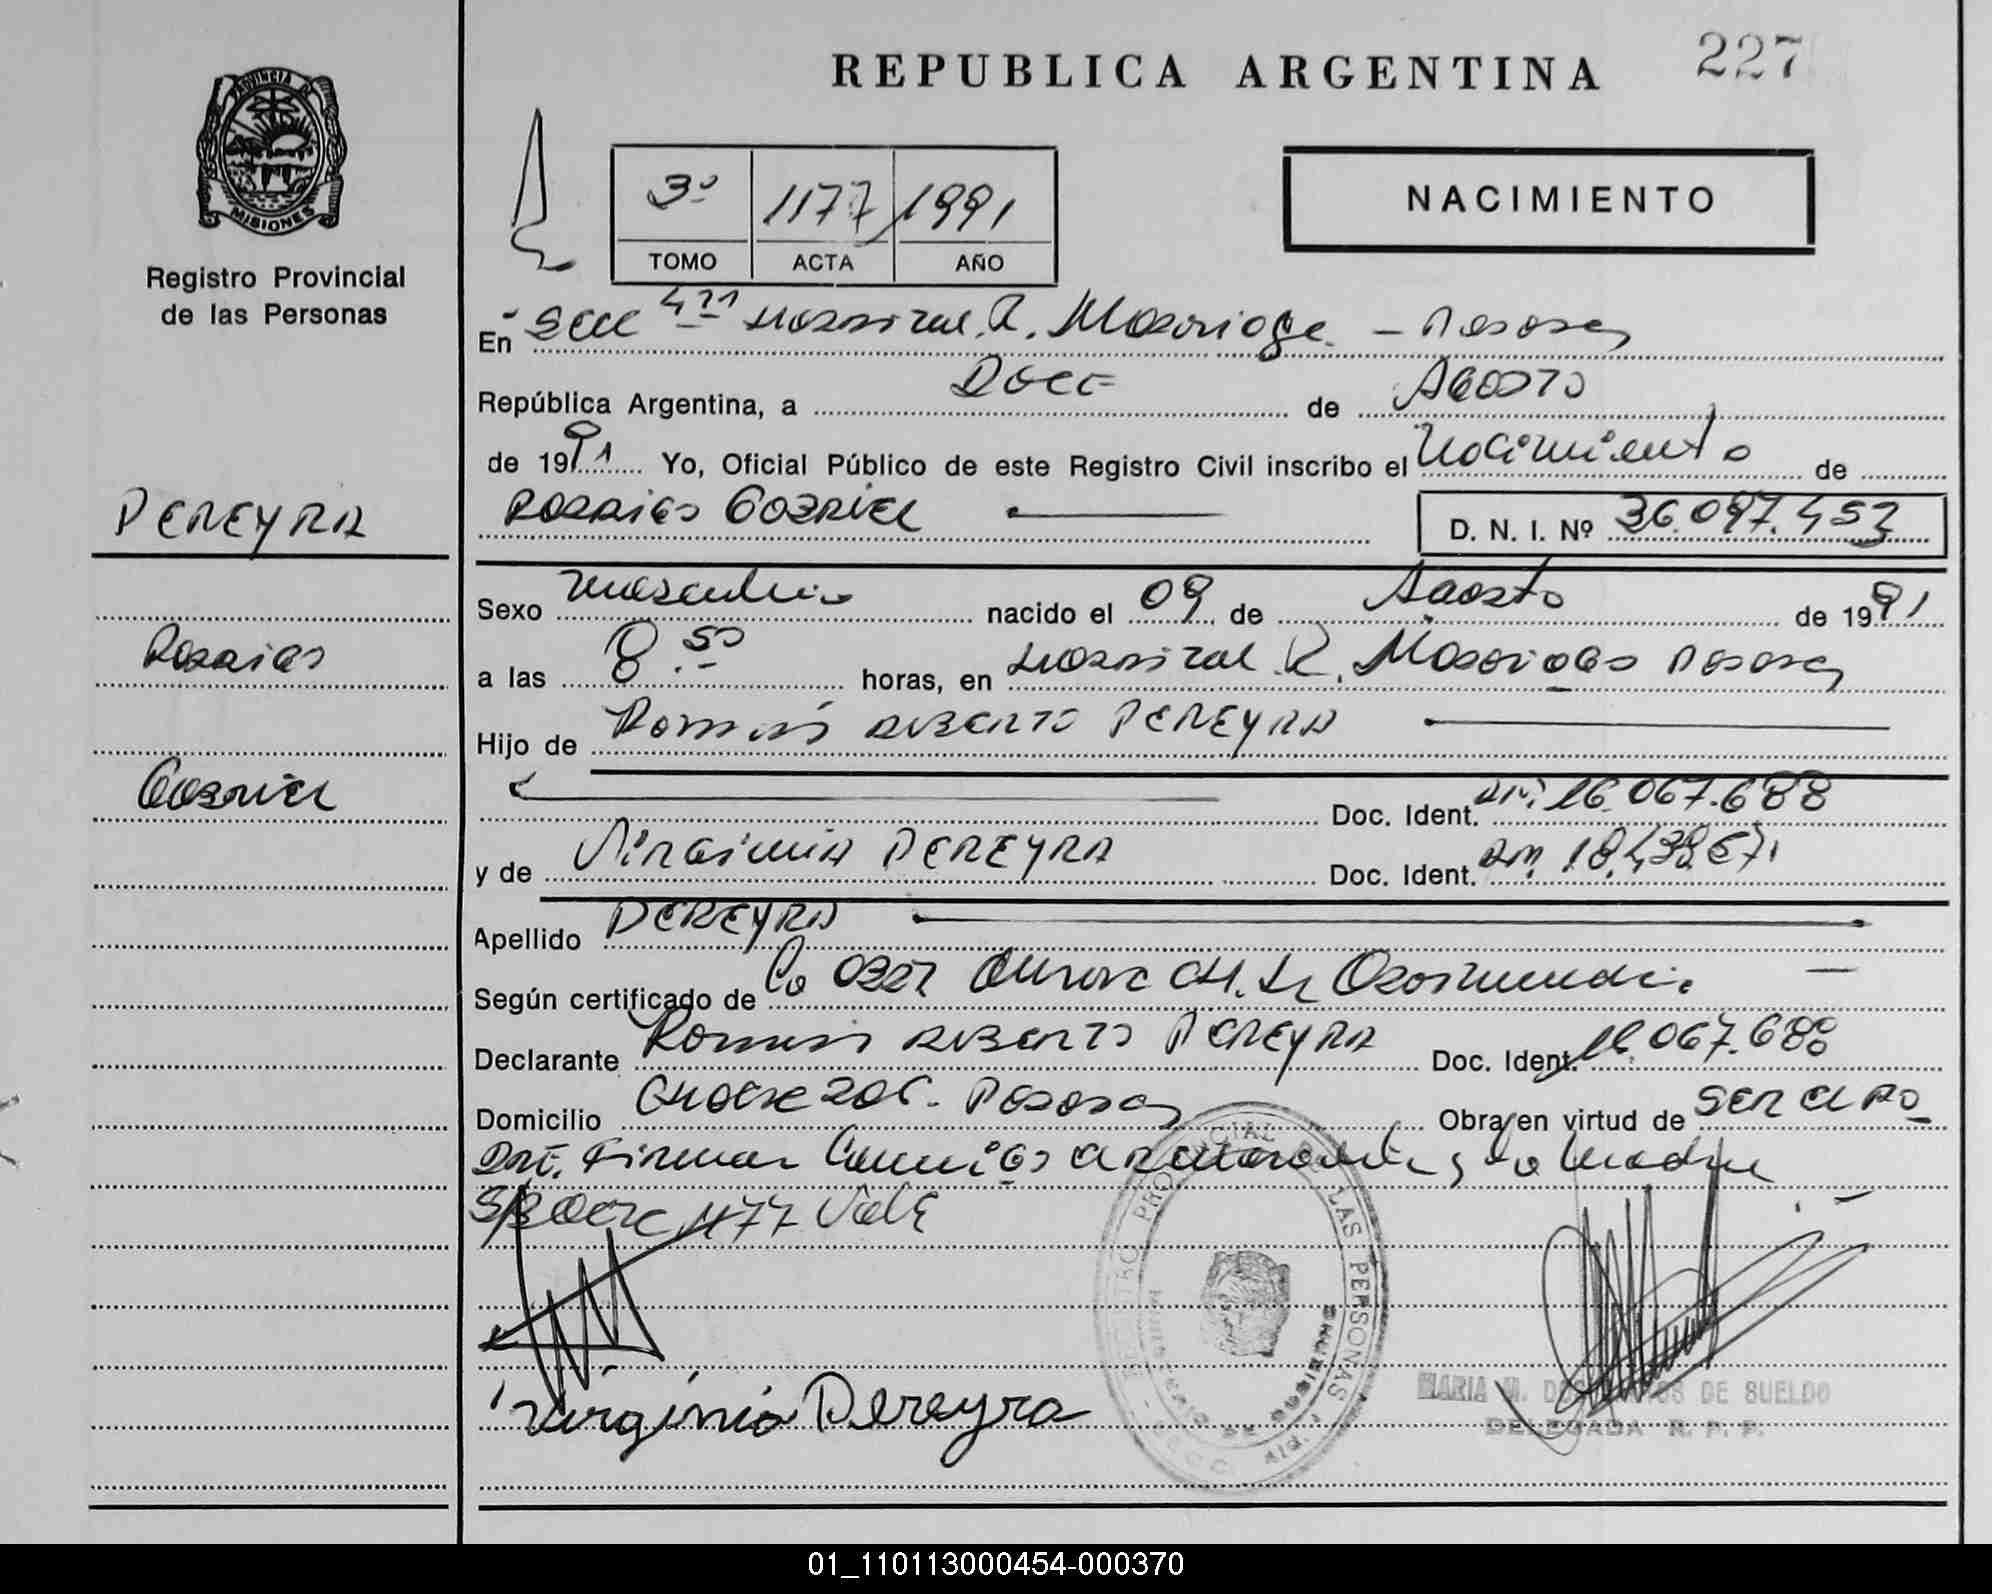 REPUBLICA ARGENTINA
227
PROVINCIA DE
MISIONES
Registro Provincial
de las Personas
3º 1177 1991
TOMO ACTA AÑO
NACIMIENTO
En Secc 4ta Hospital R. Madariaga - Posadas
República Argentina, a Doce de Agosto
de 1991 Yo, Oficial Público de este Registro Civil inscribo el Nacimiento de
Gabriel
D. N. I. Nº 36.097.453
PEREYRA
Sexo masculino nacido el 09 de Agosto de 1991
a las 8.50 horas, en Hospital R. Madariaga Posadas
Hijo de Roberto PEREYRA
Gabriel
Doc. Ident. DNI 16.067.688
y de Virginia PEREYRA Doc. Ident. DNI 18.439.671
Apellido PEREYRA
Según certificado de La Obst
Declarante Roberto PEREYRA Doc. Ident. 16.067.688
Domicilio Posadas Obra en virtud de ser el pa
dre. Firman Conmigo el declarante y la madre
1177 Vale
Virginia Pereyra
REGISTRO PROVINCIAL DE LAS PERSONAS
MARIA DE SUELDO
DELEGADA R. P. P.
01_110113000454-000370